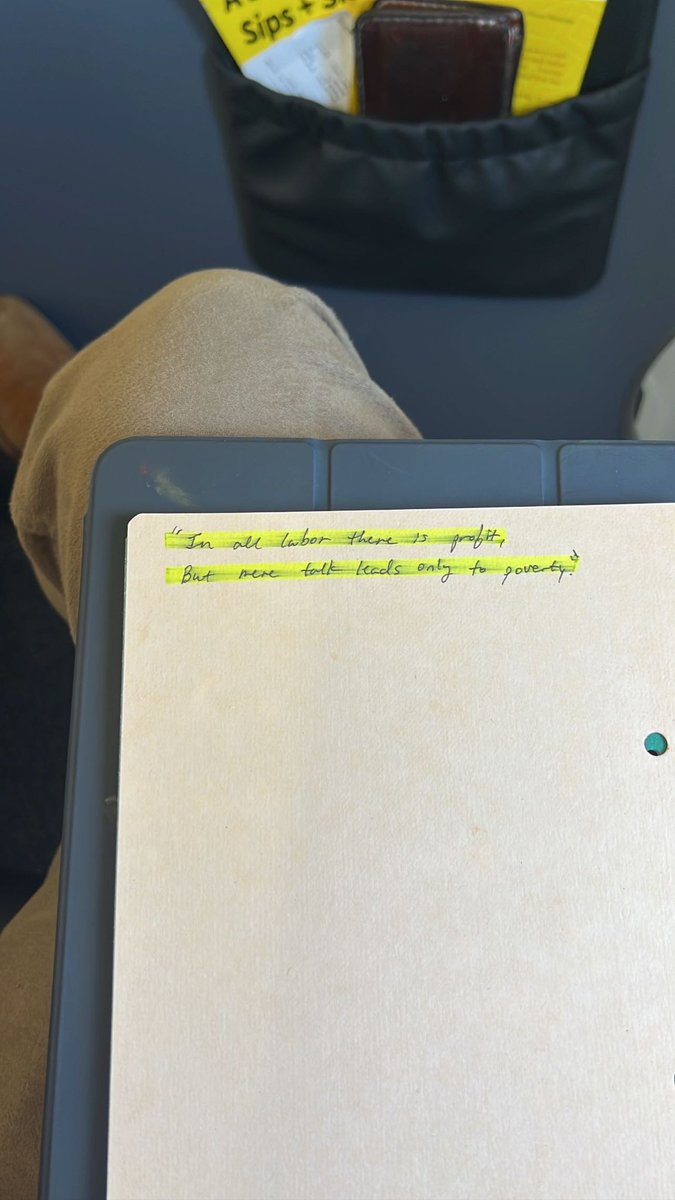 Sips + S
"In all labor there is profit,
But mere talk leads only to poverty."